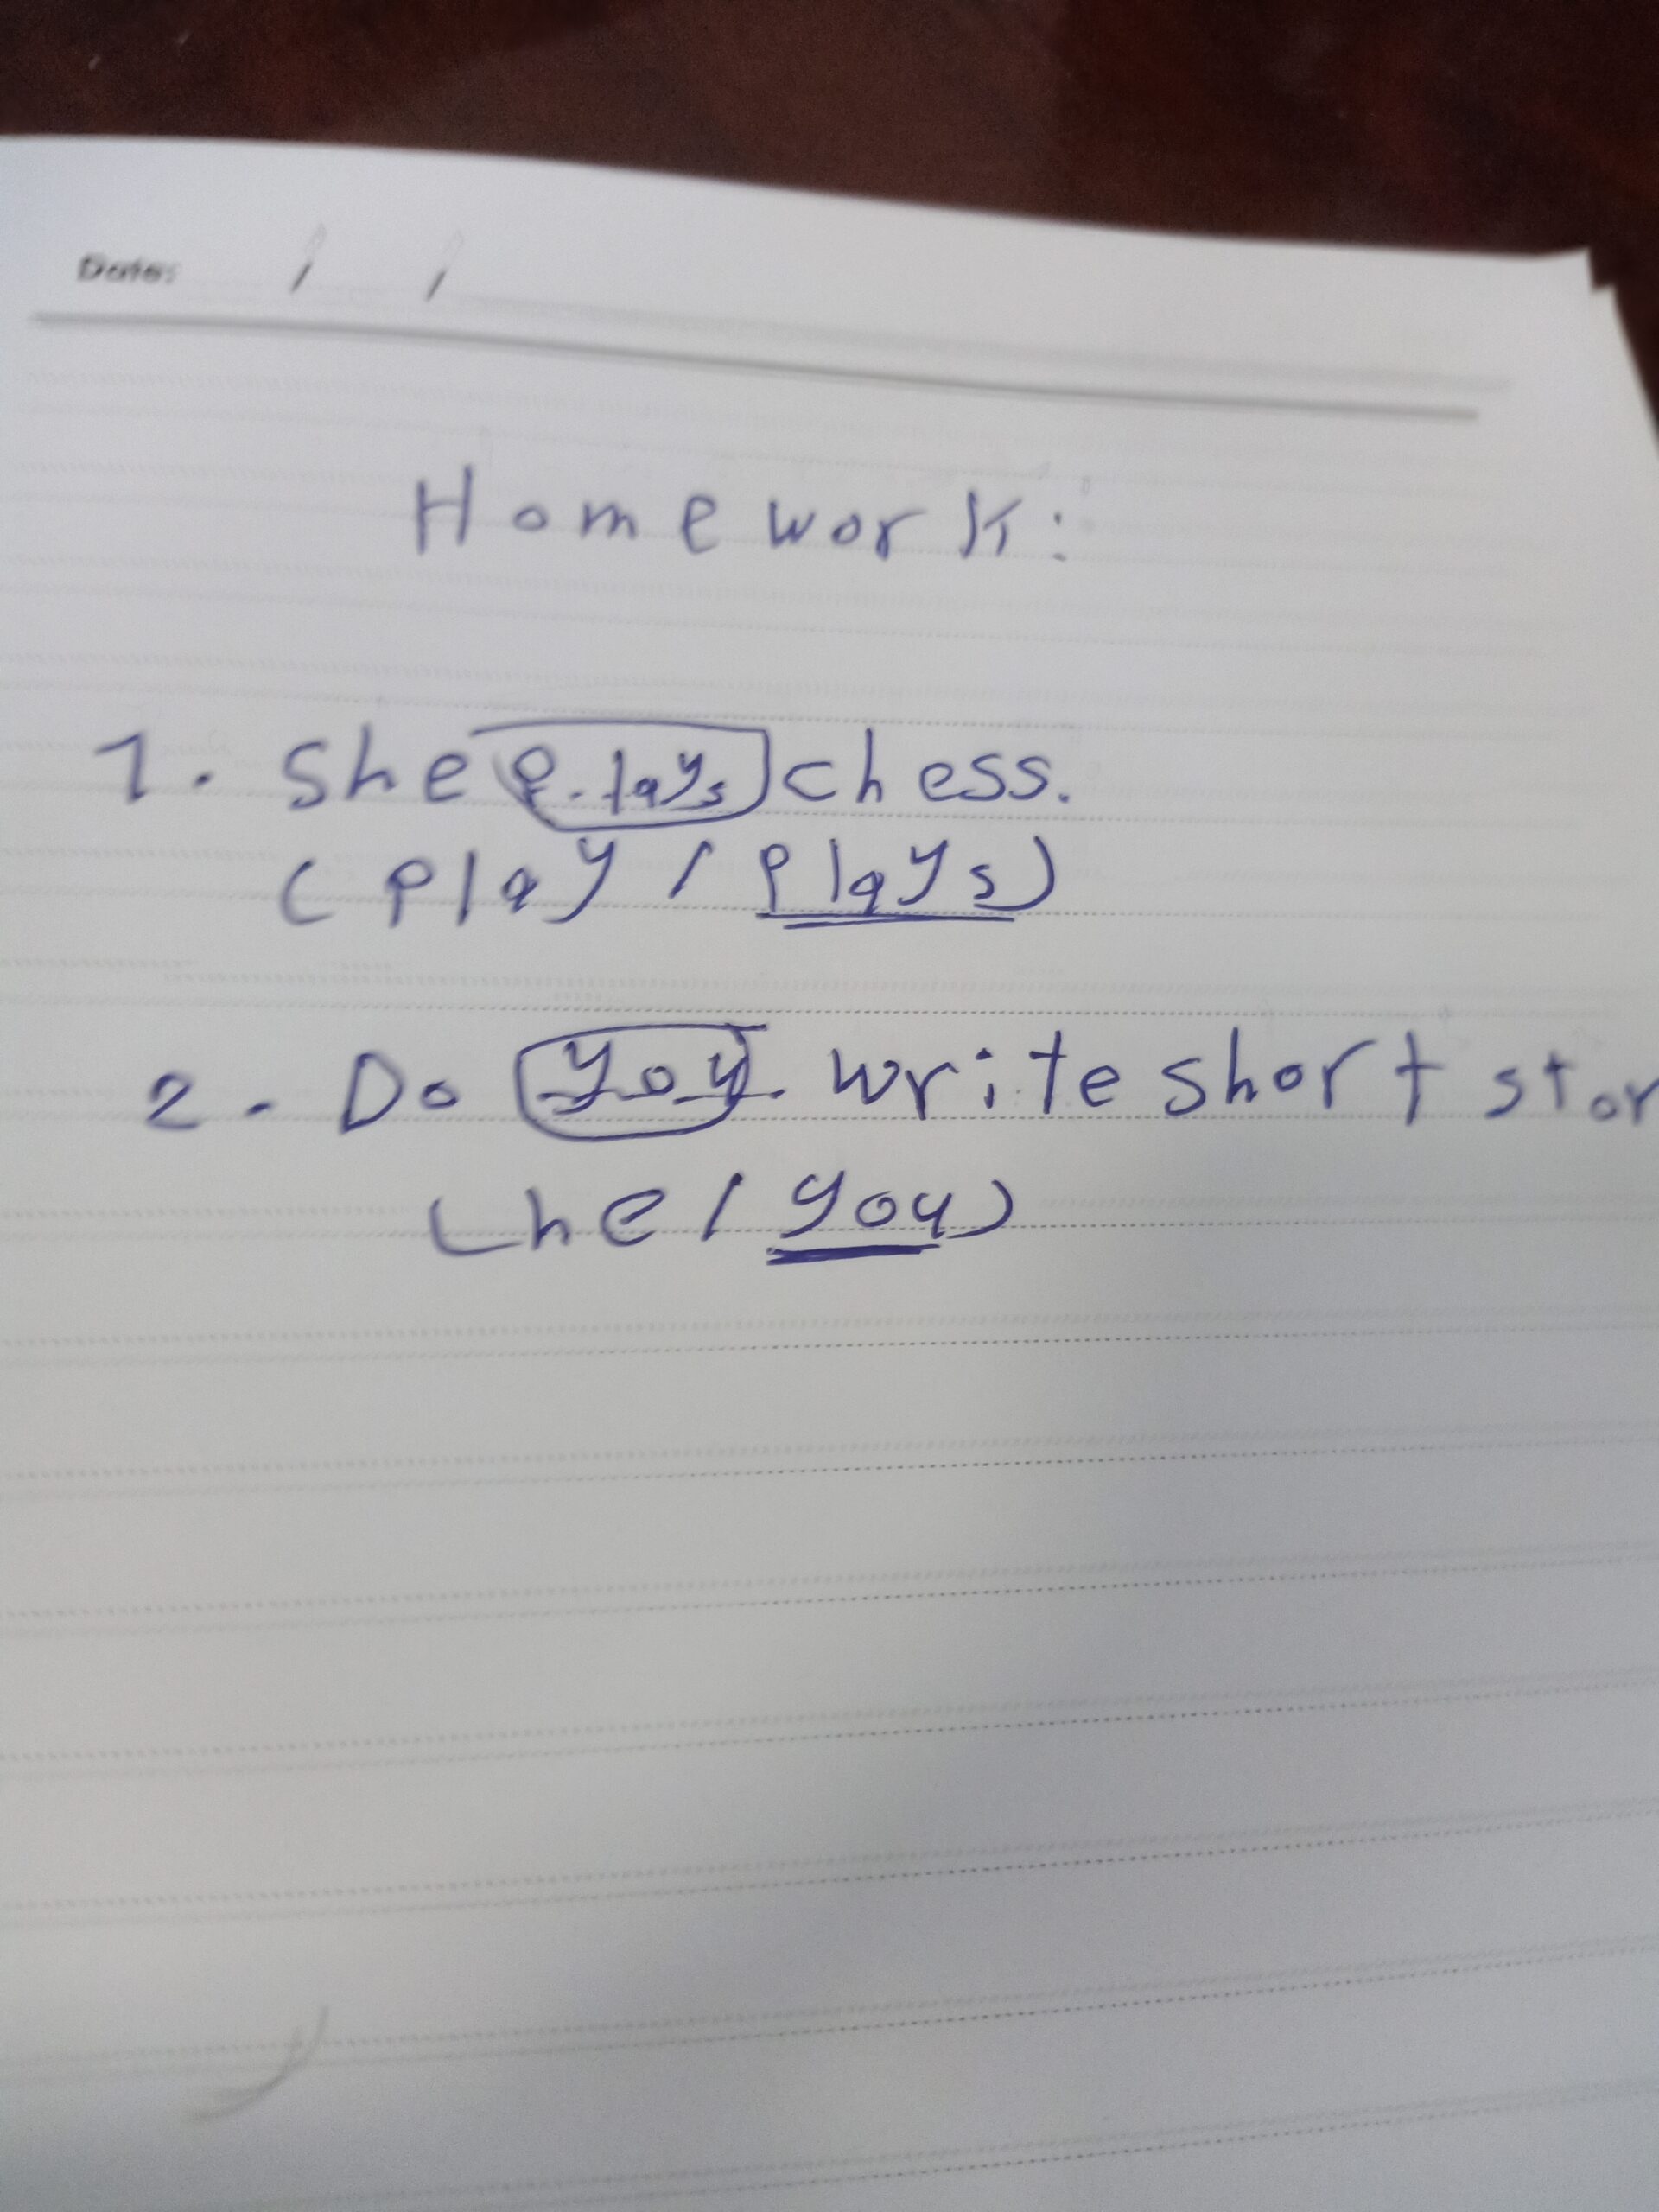 Date: / /
Homework:
1. She plays chess.
(play / plays)
2. Do you write short stor
(he / you)